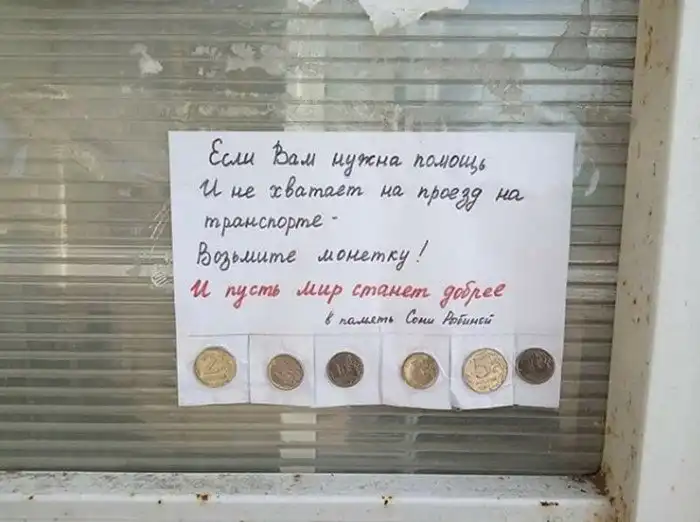 Если Вам нужна помощь
И не хватает на проезд на
транспорте -
Возьмите монетку!
И пусть мир станет добрее
в память Сони
2
5